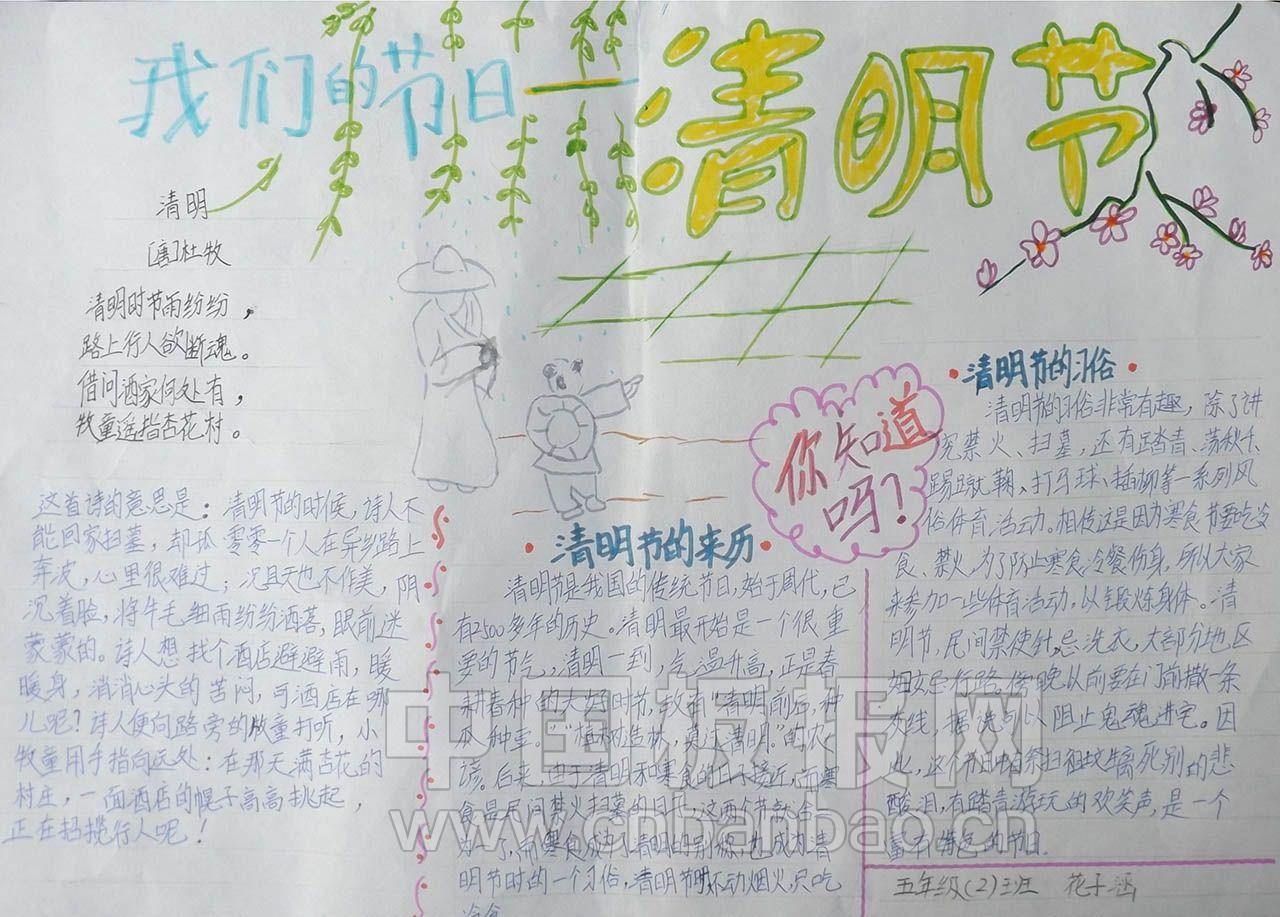 我们的节日—清明节
清明
[唐]杜牧
清明时节雨纷纷，
路上行人欲断魂。
借问酒家何处有，
牧童遥指杏花村。
这首诗的意思是：清明节的时候，诗人不
能回家扫墓，却孤零零一个人在异乡路上
车波，心里很难过；况且天也不作美，阴
沉着脸，将牛毛细雨纷纷洒落，眼前迷
蒙蒙的。诗人想找个酒店避避雨，暖
暖身，消消心头的苦闷，可酒店在哪
儿呢？诗人便向路旁的牧童打听，小
牧童用手指向远处：在那天满吉花的
村庄，一面酒店的幌子高高挑起，
正在招揽行人呢！
清明节的来历
清明节是我国的传统节日，始于周代，已
有2500多年的历史。清明最开始是一个很重
要的节气，清明一到，气温升高，正是春
耕春种的大好时节，故有“清明前后，种
瓜种豆。”“植树造林，莫过清明。”的农
谚。后来，由于清明和寒食的日子接近，而寒
食是民间禁火扫墓的日子，这两个节就合
为一，而寒食成了清明的别称，也成为清
明节时的一个习俗，清明节时不动烟火，只吃
冷食
你知道
吗？
清明节的习俗
清明节的习俗非常有趣，除了讲
究禁火、扫墓，还有踏青、荡秋千、
踢蹴鞠、打马球、插柳等一系列风
俗体育活动。相传这是因为寒食节要吃冷
食、禁火，为了防止寒食冷餐伤身，所以大家
来参加一些体育活动，以锻炼身体。清
明节，民间禁使针，忌洗衣，大部分地区
妇女忌行路。傍晚以前要在门前撒一条
灰线，据说可以阻止鬼魂进宅。因
此，这个节日中有祭扫祖坟生离死别的悲
酸泪，有踏青游玩的欢笑声，是一个
富有特色的节日.
五年级(2)班 花子涵
中国板报网
www.cnbanbao.cn